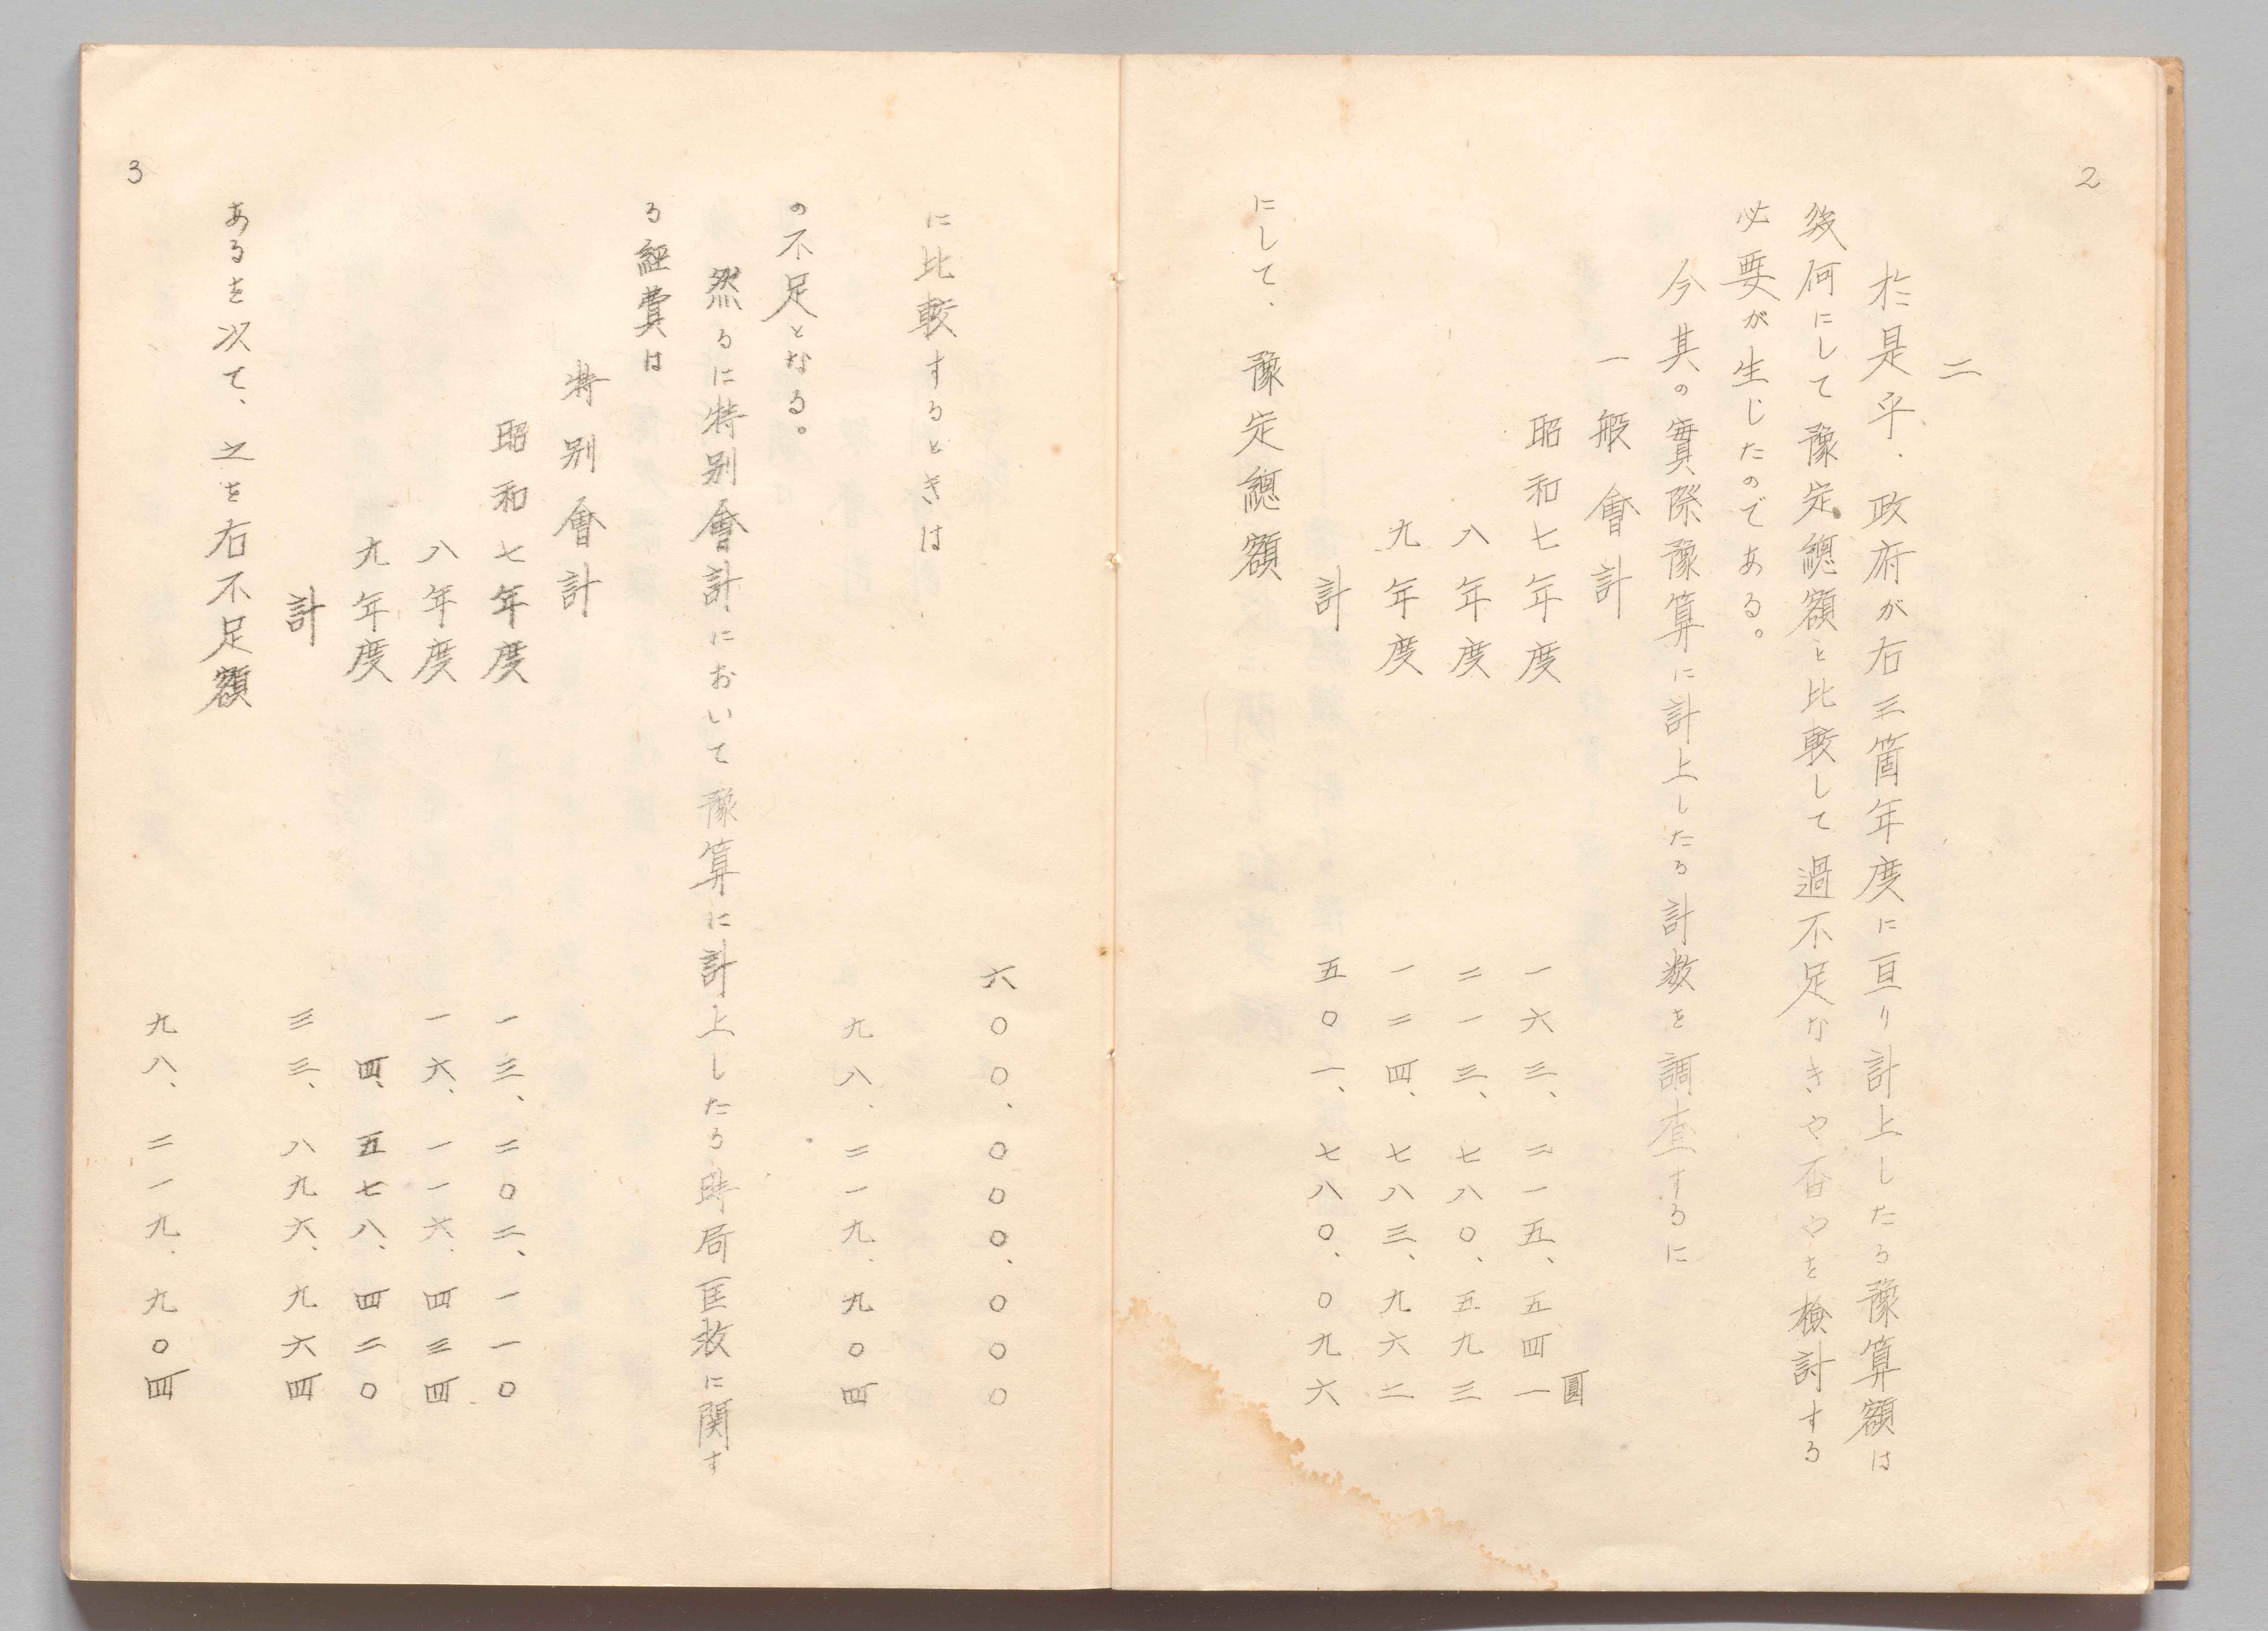 2
二
於是乎、政府が右三箇年度に亘り計上したる豫算額は
幾何にして豫定總額と比較して過不足なきや否やを検討する
必要が生じたのである。
今其の實際豫算に計上したる計数を調査するに
一般會計
圓
昭和七年度 一六三、二一五、五四一
八年度 二一三、七八〇、五九三
九年度 一二四、七八三、九六二
計 五〇一、七八〇、〇九六
にして、豫定總額
六〇〇、〇〇〇、〇〇〇
に比較するときは
九八、二一九、九〇四
の不足となる。
然るに特別會計において豫算に計上したる時局匡救に関す
る経費は
特別會計
昭和七年度 一三、二〇二、一一〇
八年度 一六、一一六、四三四
九年度 四、五七八、四二〇
計 三三、八九六、九六四
あるを以て、之を右不足額
九八、二一九、九〇四
3